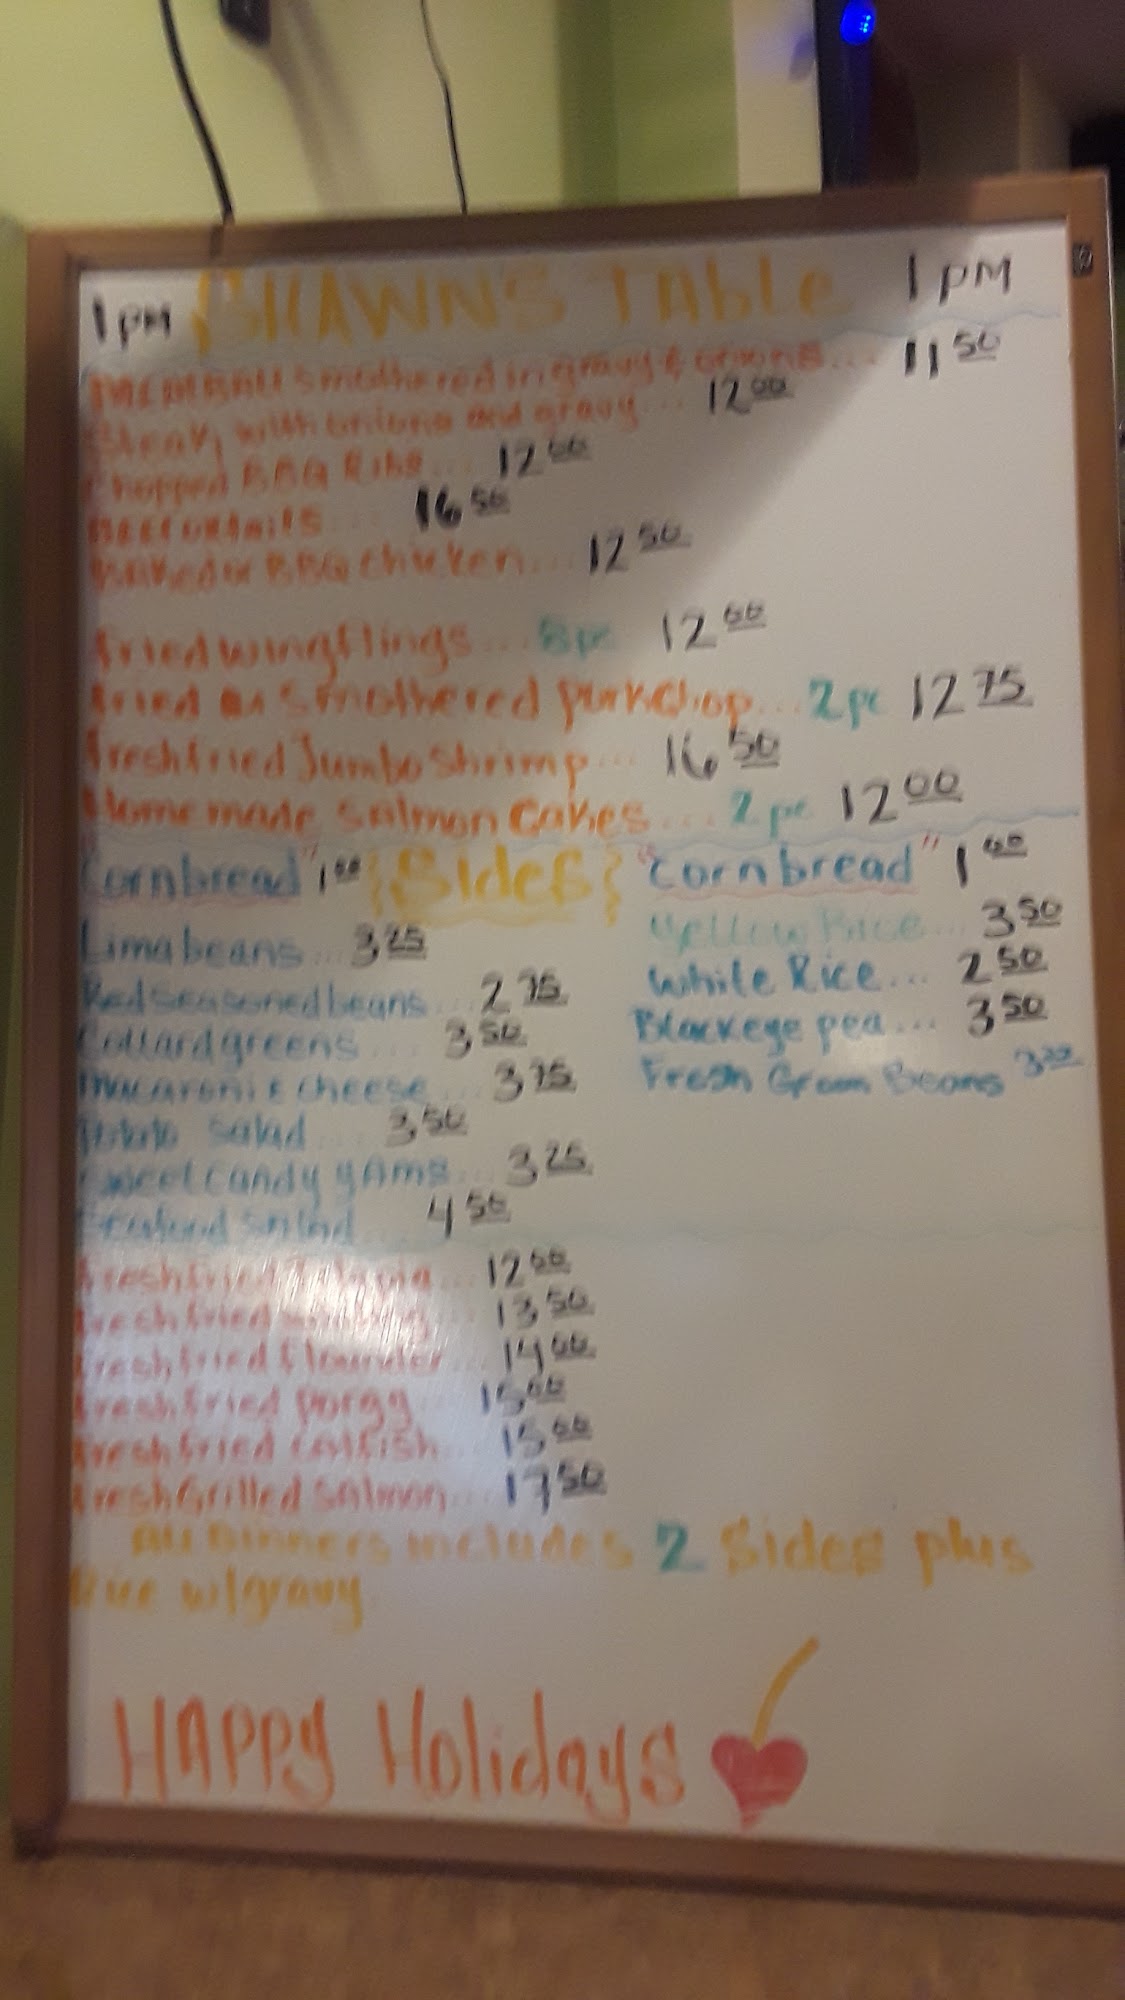 1 PM SHAWNS TAble 1 PM
smothered in gravy & onions... 11 50
Steak with onions and gravy... 12 00
Chopped BBQ Ribs... 12 00
Beef oxtails... 16 50
Baked or BBQ chicken... 12 50
fried wing flings... 8pc 12 00
fried or smothered porkchop... 2pc 12 75
fresh fried Jumbo Shrimp... 16 50
Home made salmon Cakes... 2 pc 12 00
"Cornbread" 1 00 {Sides} "Cornbread" 1 00
Lima beans... 3 25
Red seasoned beans... 2 75
Collard greens... 3 50
macaroni & cheese... 3 75
Potato Salad... 3 50
Sweet candy yams... 3 25
Seafood Salad... 4 50
Yellow Rice... 3 50
White Rice... 2 50
Blackeye pea... 3 50
Fresh Green Beans
fresh fried Tilapia... 12 00
fresh fried whiting... 13 50
fresh fried flounder... 14 00
fresh fried porgy... 15 00
fresh fried catfish... 15 00
fresh Grilled Salmon... 17 50
All Dinners includes 2 Sides plus
Rice w/gravy
HAPPy Holidays